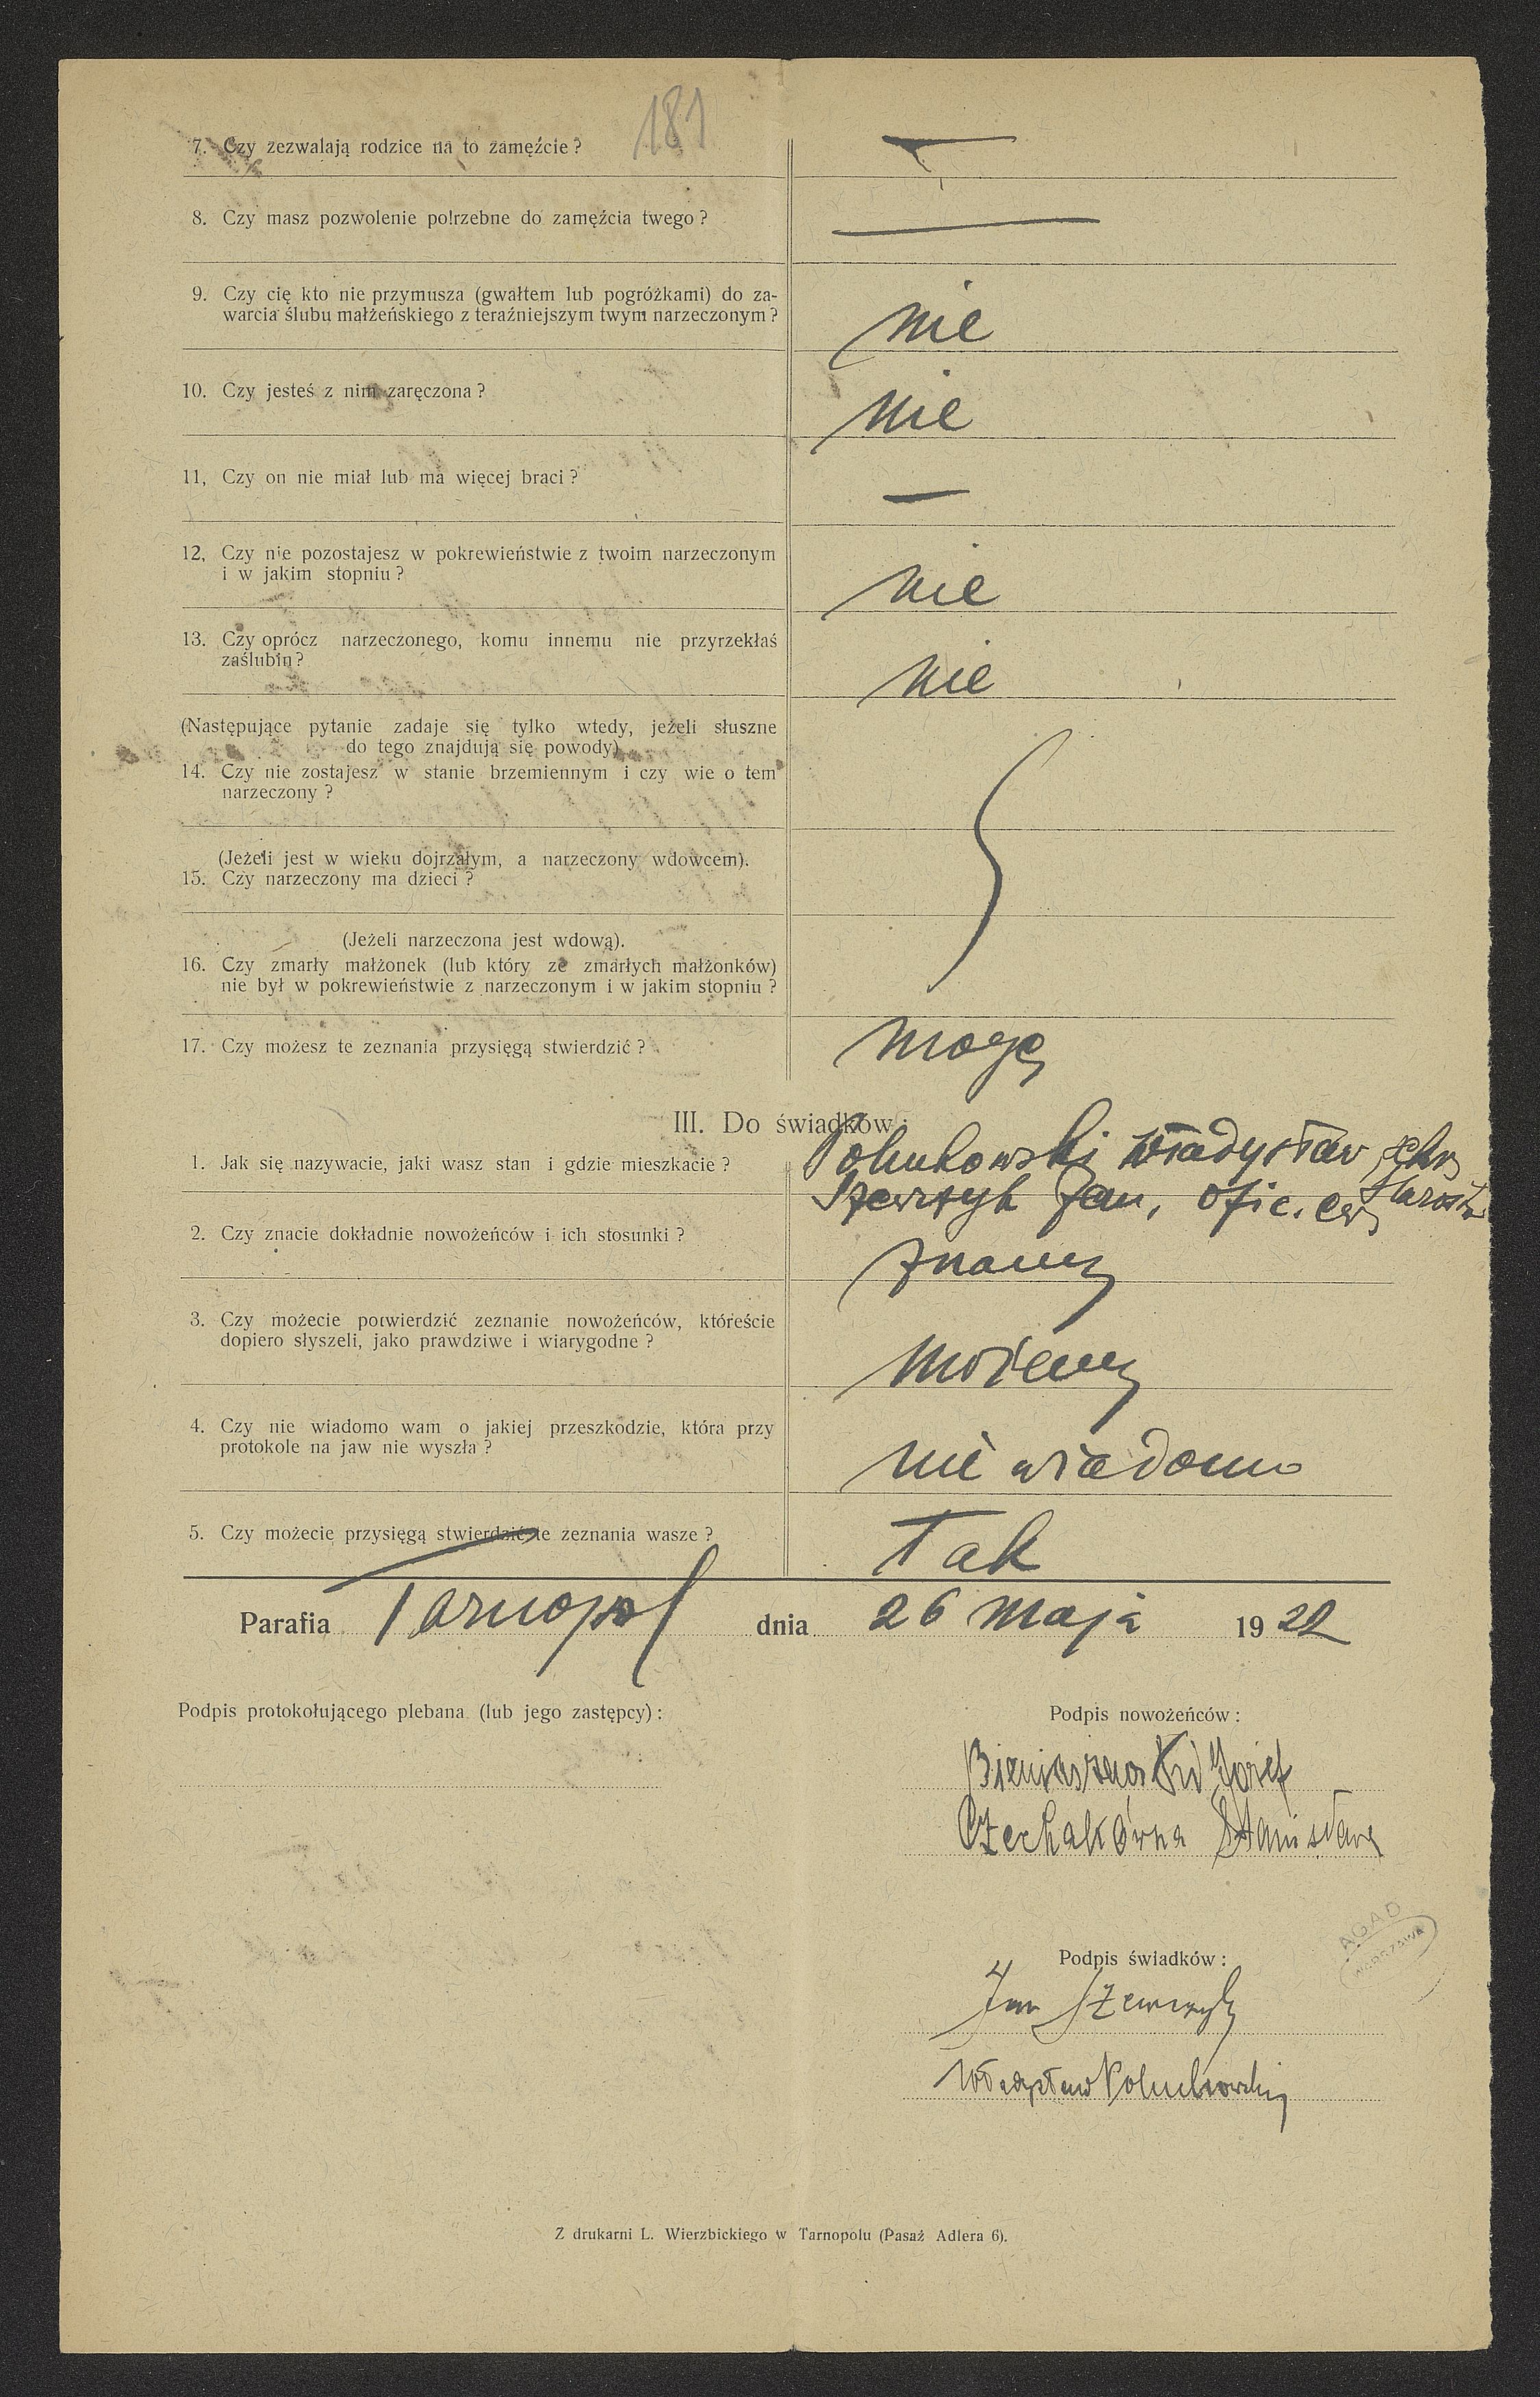 181
7. Czy zezwalają rodzice na to zamęźcie ? —
8. Czy masz pozwolenie potrzebne do zamęźcia twego ? —
9. Czy cię kto nie przymusza (gwałtem lub pogróżkami) do za-
warcia ślubu małżeńskiego z teraźniejszym twym narzeczonym ? nie
10. Czy jesteś z nim zaręczona ? nie
11, Czy on nie miał lub ma więcej braci ? —
12, Czy nie pozostajesz w pokrewieństwie z twoim narzeczonym
i w jakim stopniu ? nie
13. Czy oprócz narzeczonego, komu innemu nie przyrzekłaś
zaślubin ? nie
(Następujące pytanie zadaje się tylko wtedy, jeżeli słuszne
do tego znajdują się powody)
14. Czy nie zostajesz w stanie brzemiennym i czy wie o tem
narzeczony ?
(Jeżeli jest w wieku dojrzałym, a narzeczony wdowcem).
15. Czy narzeczony ma dzieci ?
(Jeżeli narzeczona jest wdową).
16. Czy zmarły małżonek (lub który ze zmarłych małżonków)
nie był w pokrewieństwie z narzeczonym i w jakim stopniu ?
17. Czy możesz te zeznania przysięgą stwierdzić ? mogę
III. Do świadków :
1. Jak się nazywacie, jaki wasz stan i gdzie mieszkacie ? Władysław
Jan,
2. Czy znacie dokładnie nowożeńców i ich stosunki ? znamy
3. Czy możecie potwierdzić zeznanie nowożeńców, któreście
dopiero słyszeli, jako prawdziwe i wiarygodne ? możemy
4. Czy nie wiadomo wam o jakiej przeszkodzie, która przy
protokole na jaw nie wyszła ? nie wiadomo
5. Czy możecie przysięgą stwierdzić te zeznania wasze ? Tak
Parafia Tarnopol dnia 26 maja 1922
Podpis protokołującego plebana (lub jego zastępcy) :
Podpis nowożeńców :
Bieniaszewski Józef
Czechakówna Stanisława
AGAD
WARSZAWA
Podpis świadków :
Jan Szewczyk
Władysław
Z drukarni L. Wierzbickiego w Tarnopolu (Pasaż Adlera 6).